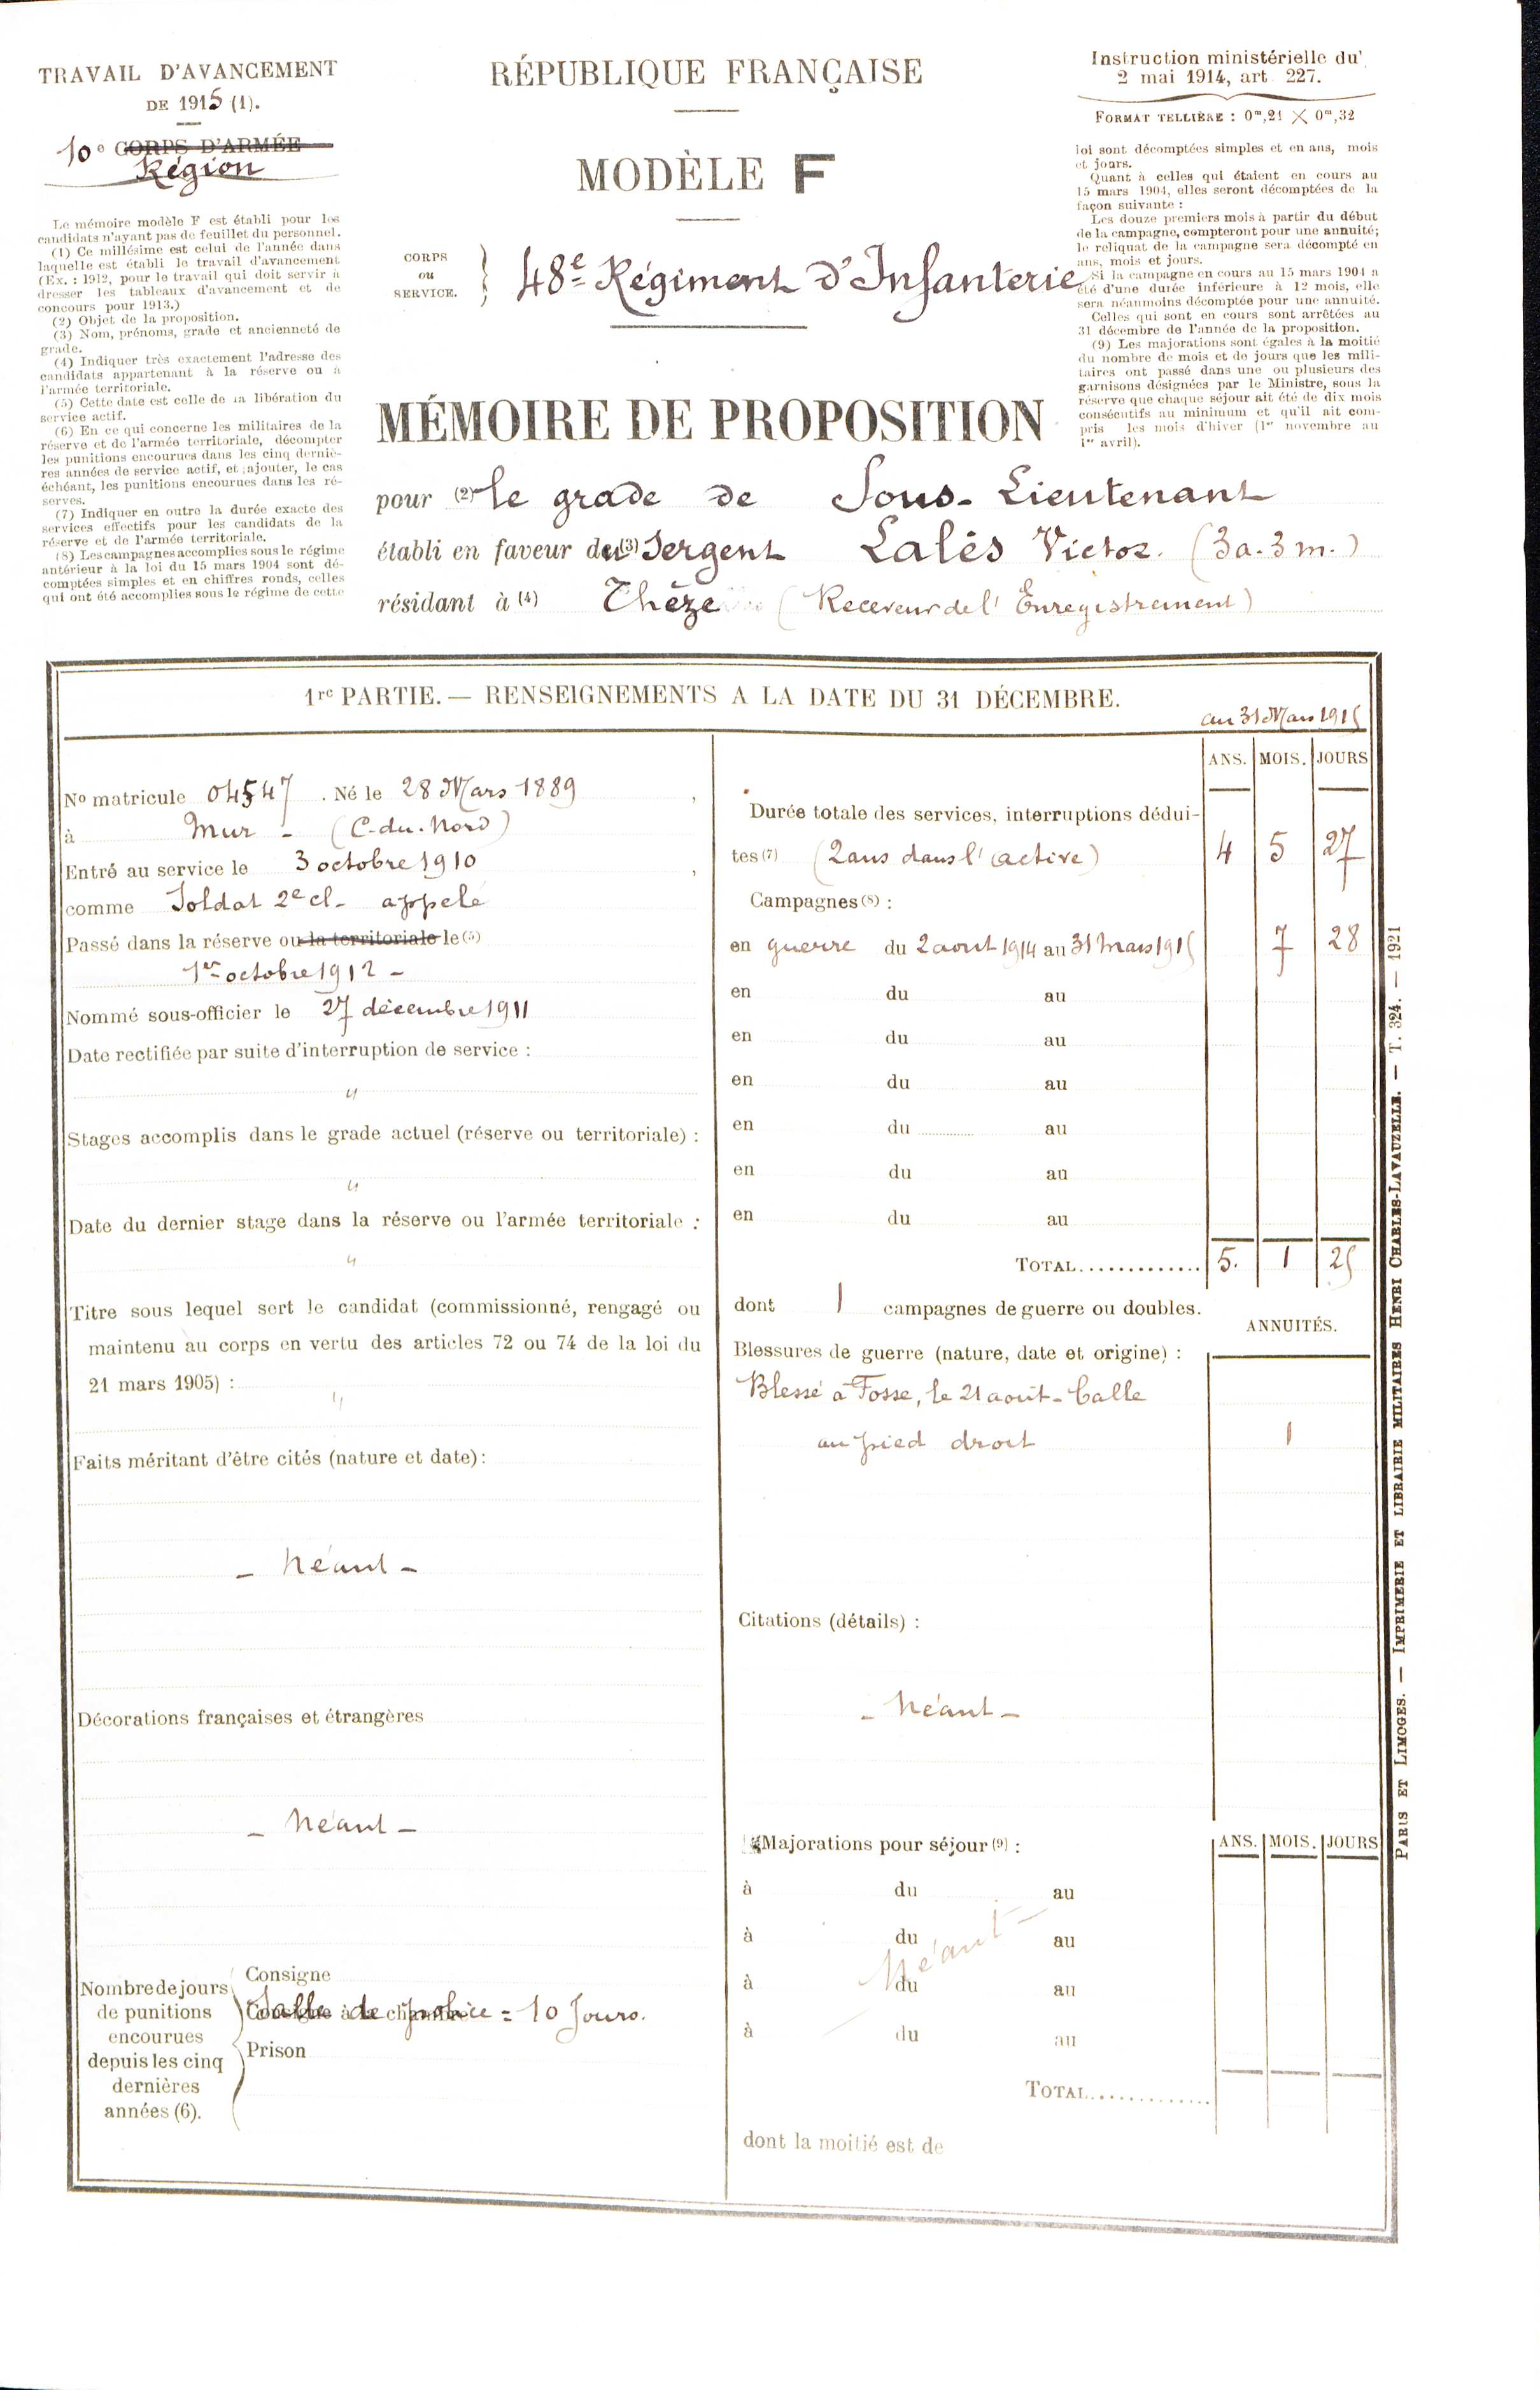 TRAVAIL D'AVANCEMENT
DE 1915 (1).
10e CORPS D'ARMÉE
Région
Le mémoire modèle F est établi pour les
candidats n'ayant pas de feuillet du personnel.
(1) Ce millésime est celui de l'année dans
laquelle est établi le travail d'avancement.
(Ex. : 1912, pour le travail qui doit servir à
dresser les tableaux d'avancement et de
concours pour 1913.)
(2) Objet de la proposition.
(3) Nom, prénoms, grade et ancienneté de
grade.
(4) Indiquer très exactement l'adresse des
candidats appartenant à la réserve ou à
l'armée territoriale.
(5) Cette date est celle de la libération du
service actif.
(6) En ce qui concerne les militaires de la
réserve et de l'armée territoriale, décompter
les punitions encourues dans les cinq derniè-
res années de service actif, et ajouter, le cas
échéant, les punitions encourues dans les ré-
serves.
(7) Indiquer en outre la durée exacte des
services effectifs pour les candidats de la
réserve et de l'armée territoriale.
(8) Les campagnes accomplies sous le régime
antérieur à la loi du 15 mars 1904 sont dé-
comptées simples et en chiffres ronds, celles
qui ont été accomplies sous le régime de cette
RÉPUBLIQUE FRANÇAISE
MODÈLE F
CORPS
ou
SERVICE.
48e Régiment d'Infanterie
Instruction ministérielle du
2 mai 1914, art. 227.
FORMAT TELLIÈRE : 0m,21 X 0m,32
loi sont décomptées simples et en ans, mois
et jours.
Quant à celles qui étaient en cours au
15 mars 1904, elles seront décomptées de la
façon suivante :
Les douze premiers mois à partir du début
de la campagne, compteront pour une annuité;
le reliquat de la campagne sera décompté en
ans, mois et jours.
Si la campagne en cours au 15 mars 1904 a
été d'une durée inférieure à 12 mois, elle
sera néanmoins décomptée pour une annuité.
Celles qui sont en cours sont arrêtées au
31 décembre de l'année de la proposition.
(9) Les majorations sont égales à la moitié
du nombre de mois et de jours que les mili-
taires ont passé dans une ou plusieurs des
garnisons désignées par le Ministre, sous la
réserve que chaque séjour ait été de dix mois
consécutifs au minimum et qu'il ait com-
pris les mois d'hiver (1er novembre au
1er avril).
MÉMOIRE DE PROPOSITION
pour (2) le grade de Sous-Lieutenant
établi en faveur du (3) Sergent Lalès Victor. (3 a. 3 m.)
résidant à (4) Thèze (Receveur de l'Enregistrement)
1re PARTIE. — RENSEIGNEMENTS A LA DATE DU 31 DÉCEMBRE.
au 31 Mars 1915
No matricule 04547 . Né le 28 Mars 1889 ,
à Mur - (C.-du-Nord)
Entré au service le 3 octobre 1910 ,
comme Soldat 2e cl. appelé
Passé dans la réserve ou la territoriale le (5)
1er octobre 1912 -
Nommé sous-officier le 27 décembre 1911
Date rectifiée par suite d'interruption de service :
"
Stages accomplis dans le grade actuel (réserve ou territoriale) :
"
Date du dernier stage dans la réserve ou l'armée territoriale :
"
Titre sous lequel sert le candidat (commissionné, rengagé ou
maintenu au corps en vertu des articles 72 ou 74 de la loi du
21 mars 1905) :
"
Faits méritant d'être cités (nature et date) :
- Néant -
Décorations françaises et étrangères
- Néant -
Nombre de jours
de punitions
encourues
depuis les cinq
dernières
années (6).
Consigne
Consigne à la chambre
Salle de police = 10 jours.
Prison
ANS. MOIS. JOURS
Durée totale des services, interruptions dédui-
tes (7) (2 ans dans l'active) 4 5 27
Campagnes (8) :
en guerre du 2 aout 1914 au 31 mars 1915 7 28
en du au
en du au
en du au
en du au
en du au
en du au
TOTAL............. 5. 1 25
dont 1 campagnes de guerre ou doubles.
ANNUITÉS.
Blessures de guerre (nature, date et origine) :
Blessé à Fosse, le 21 août - balle
au pied droit 1
Citations (détails) :
- Néant -
Majorations pour séjour (9) : ANS. MOIS. JOURS
à du au
à du au
Néant
à du au
à du au
TOTAL.............
dont la moitié est de
PARIS ET LIMOGES. — IMPRIMERIE ET LIBRAIRIE MILITAIRES HENRI CHARLES-LAVAUZELLE. — T. 324. — 1921